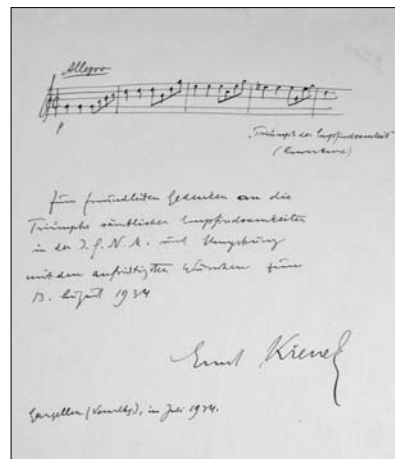 Allegro
p
„Triumph der Empfindsamkeit“
(Ouverture)
Zum freundlichen Gedenken an die
Triumphe sämtlicher Empfindsamkeiten
in der I.G.N.M. und Umgebung
mit den aufrichtigsten Wünschen zum
13. August 1934
Ernst Křenek
Gargellen (Vorarlbg.), im Juli 1934.